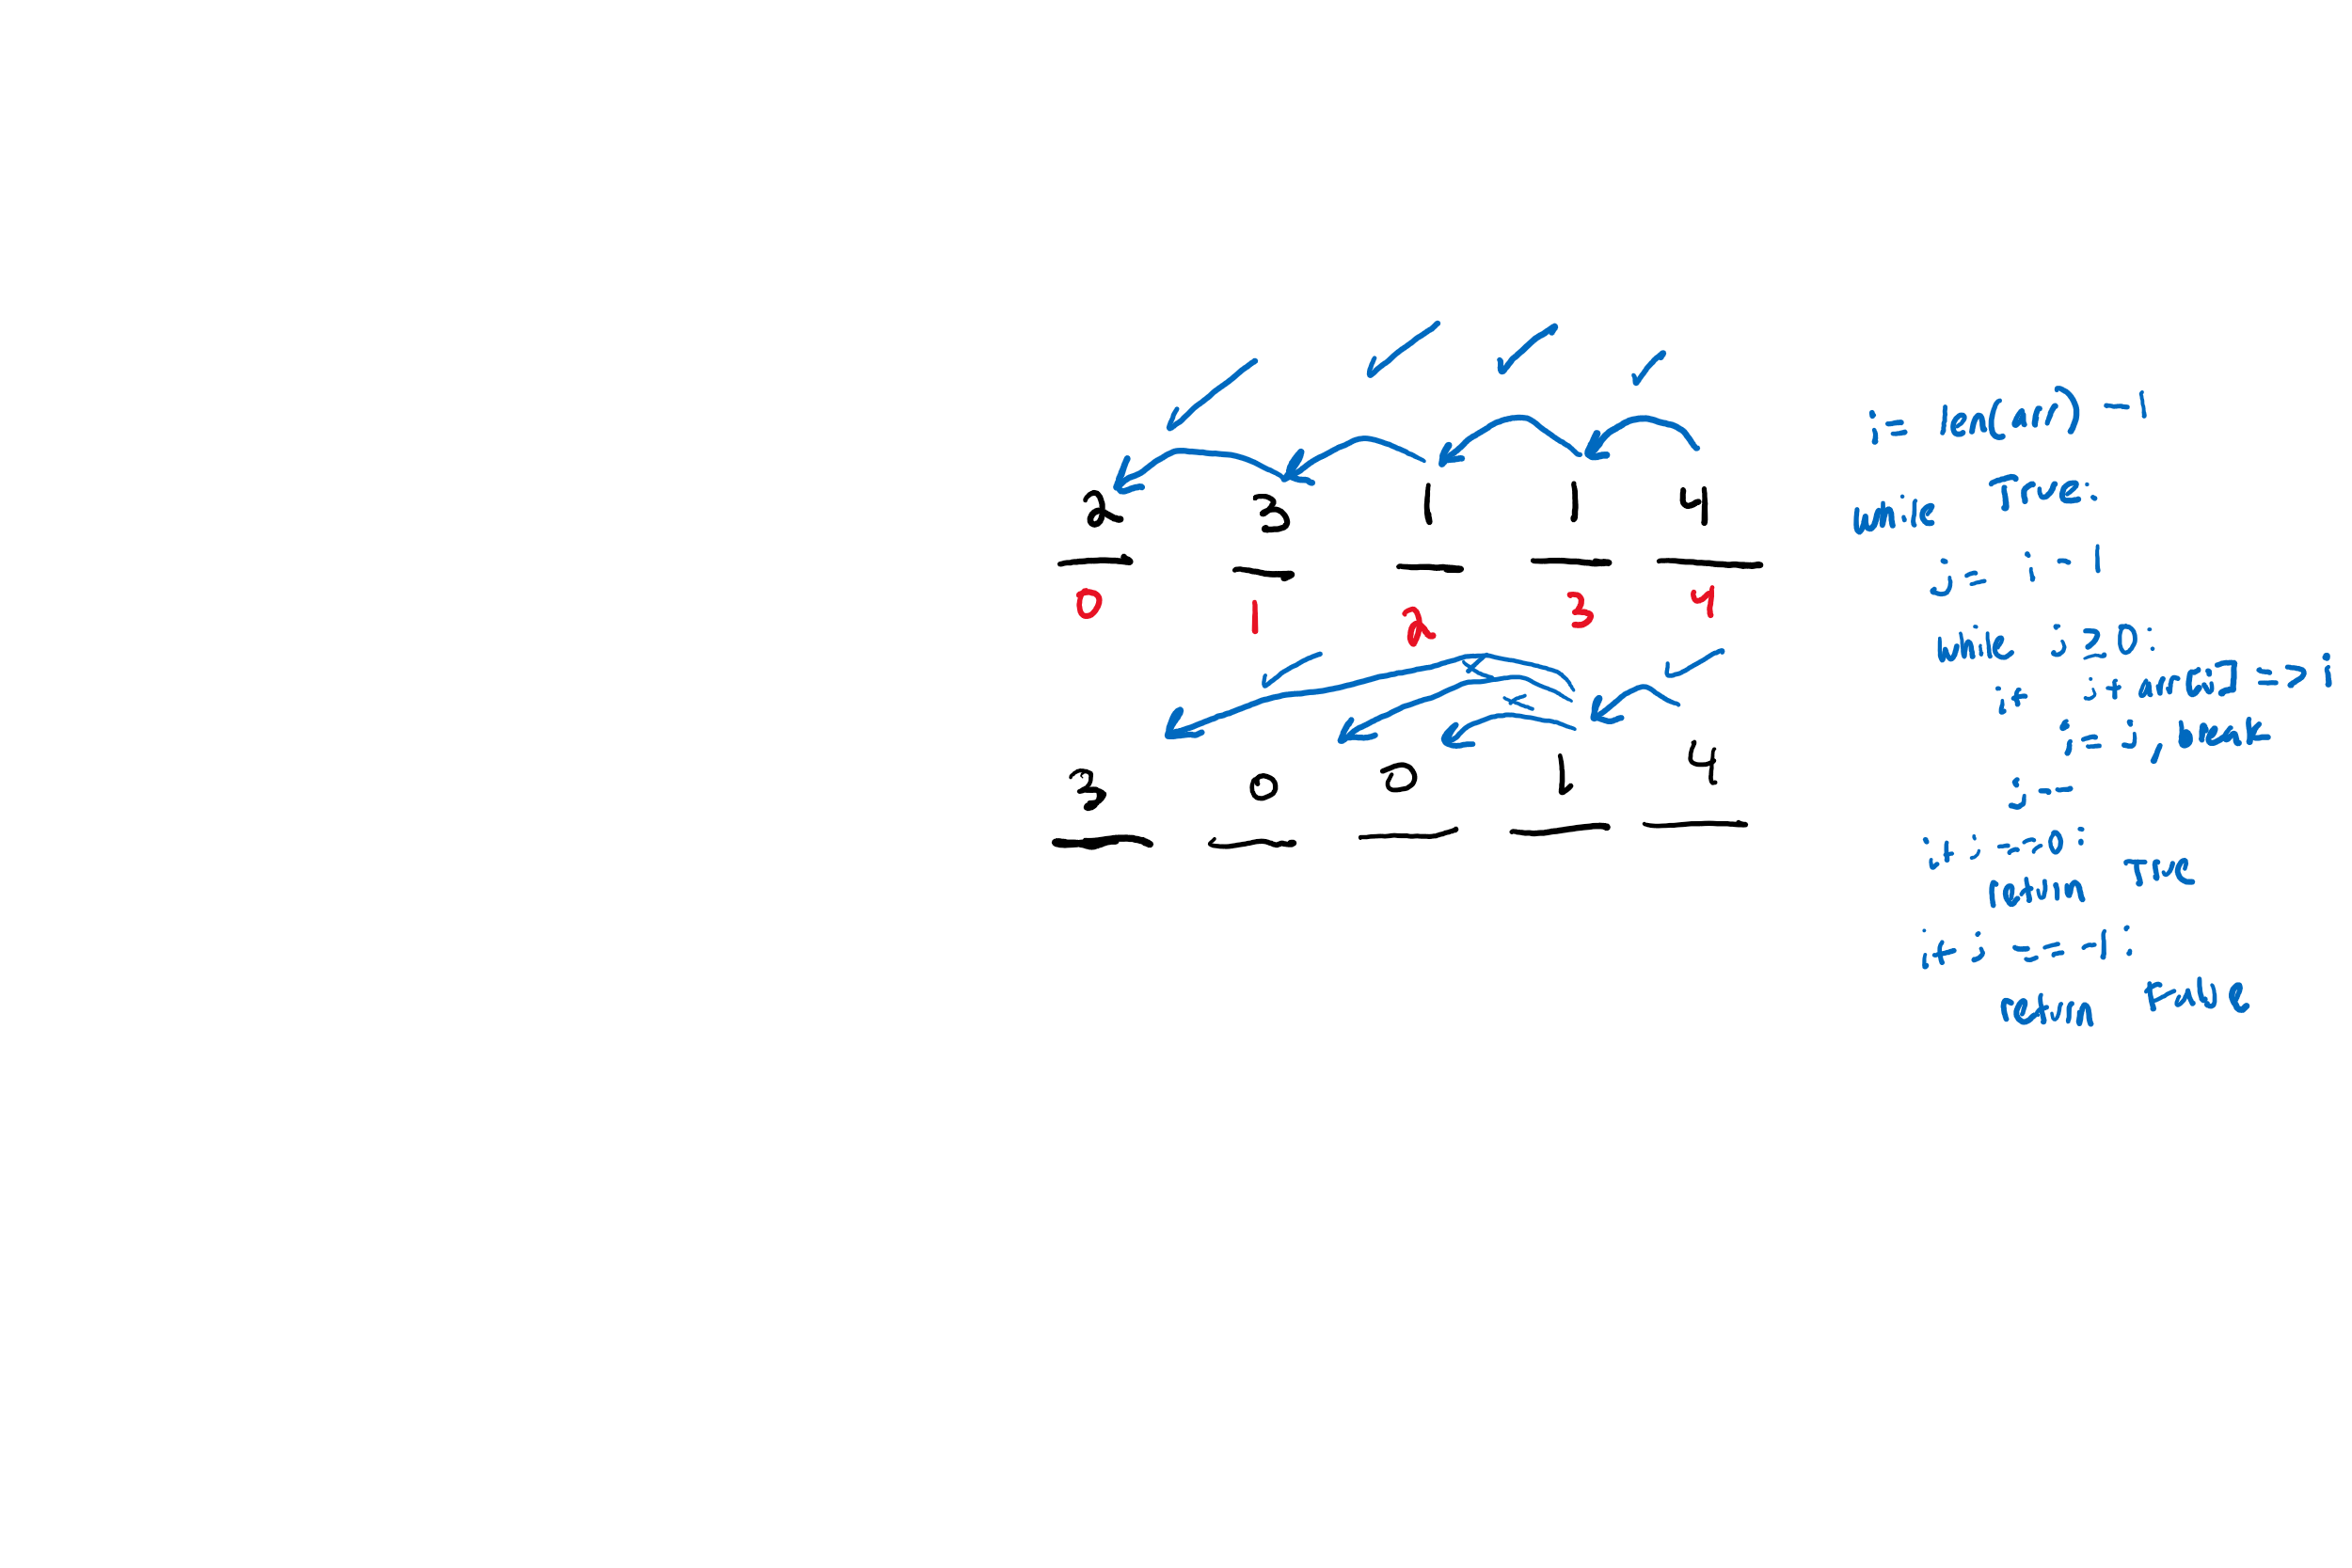 2 3 1 1 4
0 1 2 3 4
3 0 0 1 4
i = len(arr) - 1
while True:
j = i - 1
while j ≥ 0:
if j + arr[j] => i
i = j, break
j--
if j == 0:
return True
if j == -1:
return False